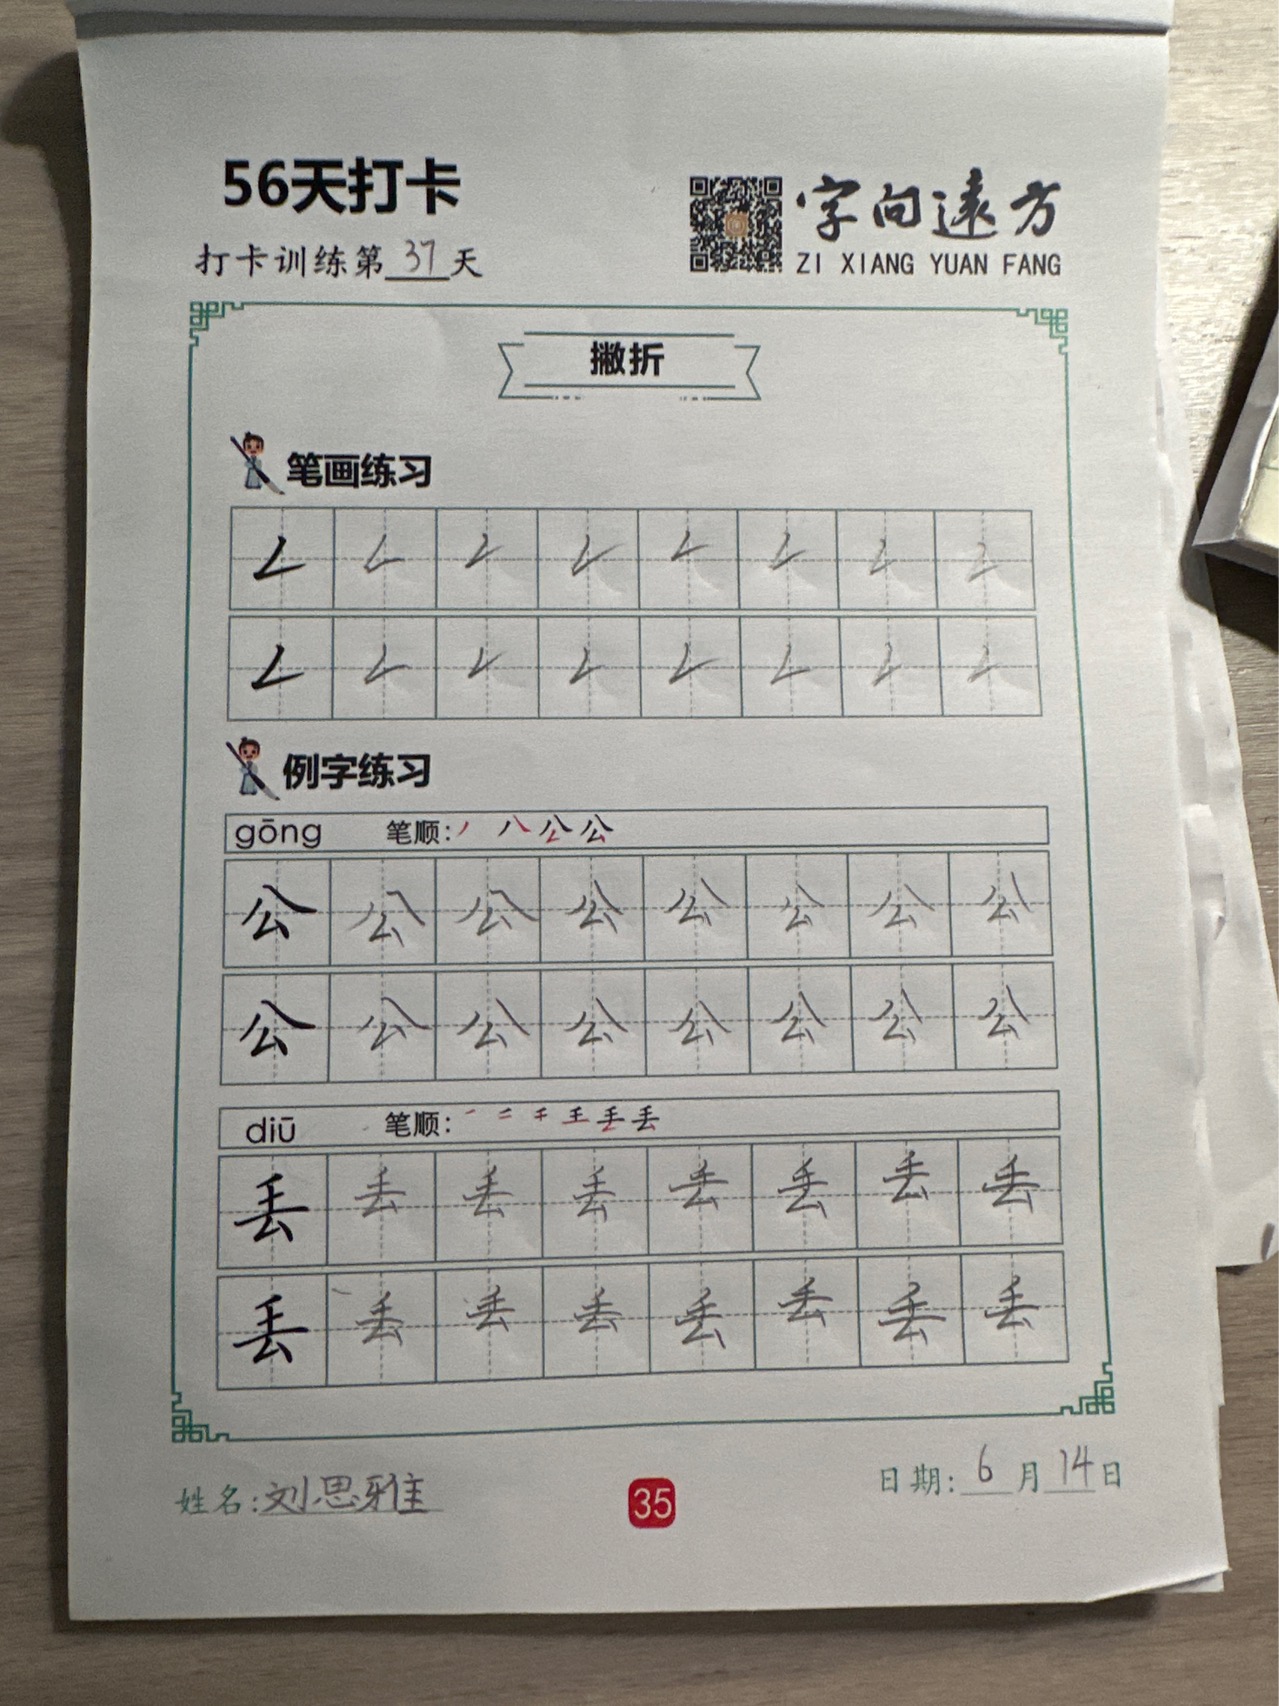 56天打卡
打卡训练第37天
字向遠方
ZI XIANG YUAN FANG
撇折
笔画练习
例字练习
gōng 笔顺: 公
公 公 公 公 公 公 公 公
公 公 公 公 公 公 公 公
diū 笔顺: 丢
丢 丢 丢 丢 丢 丢 丢 丢
丢 丢 丢 丢 丢 丢 丢 丢
姓名:刘思雅
35
日期:6月14日